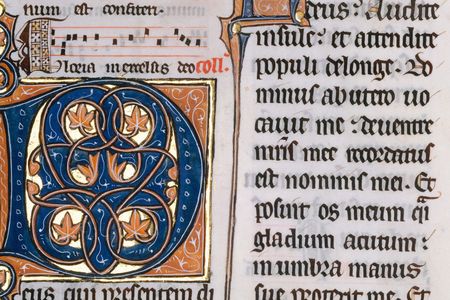 num est confiteri.
Gloria in excelsis deo coll.
Deus qui presentem di
deus: Audite
insule: et attendite
populi delonge. Do
minus ab utero uo
cauit me: deuentre
mr̄is mee recordatus
est nominis mei. Et
posuit os meum q̄i
gladium acutum:
in umbra manus
sue protexit me. Et